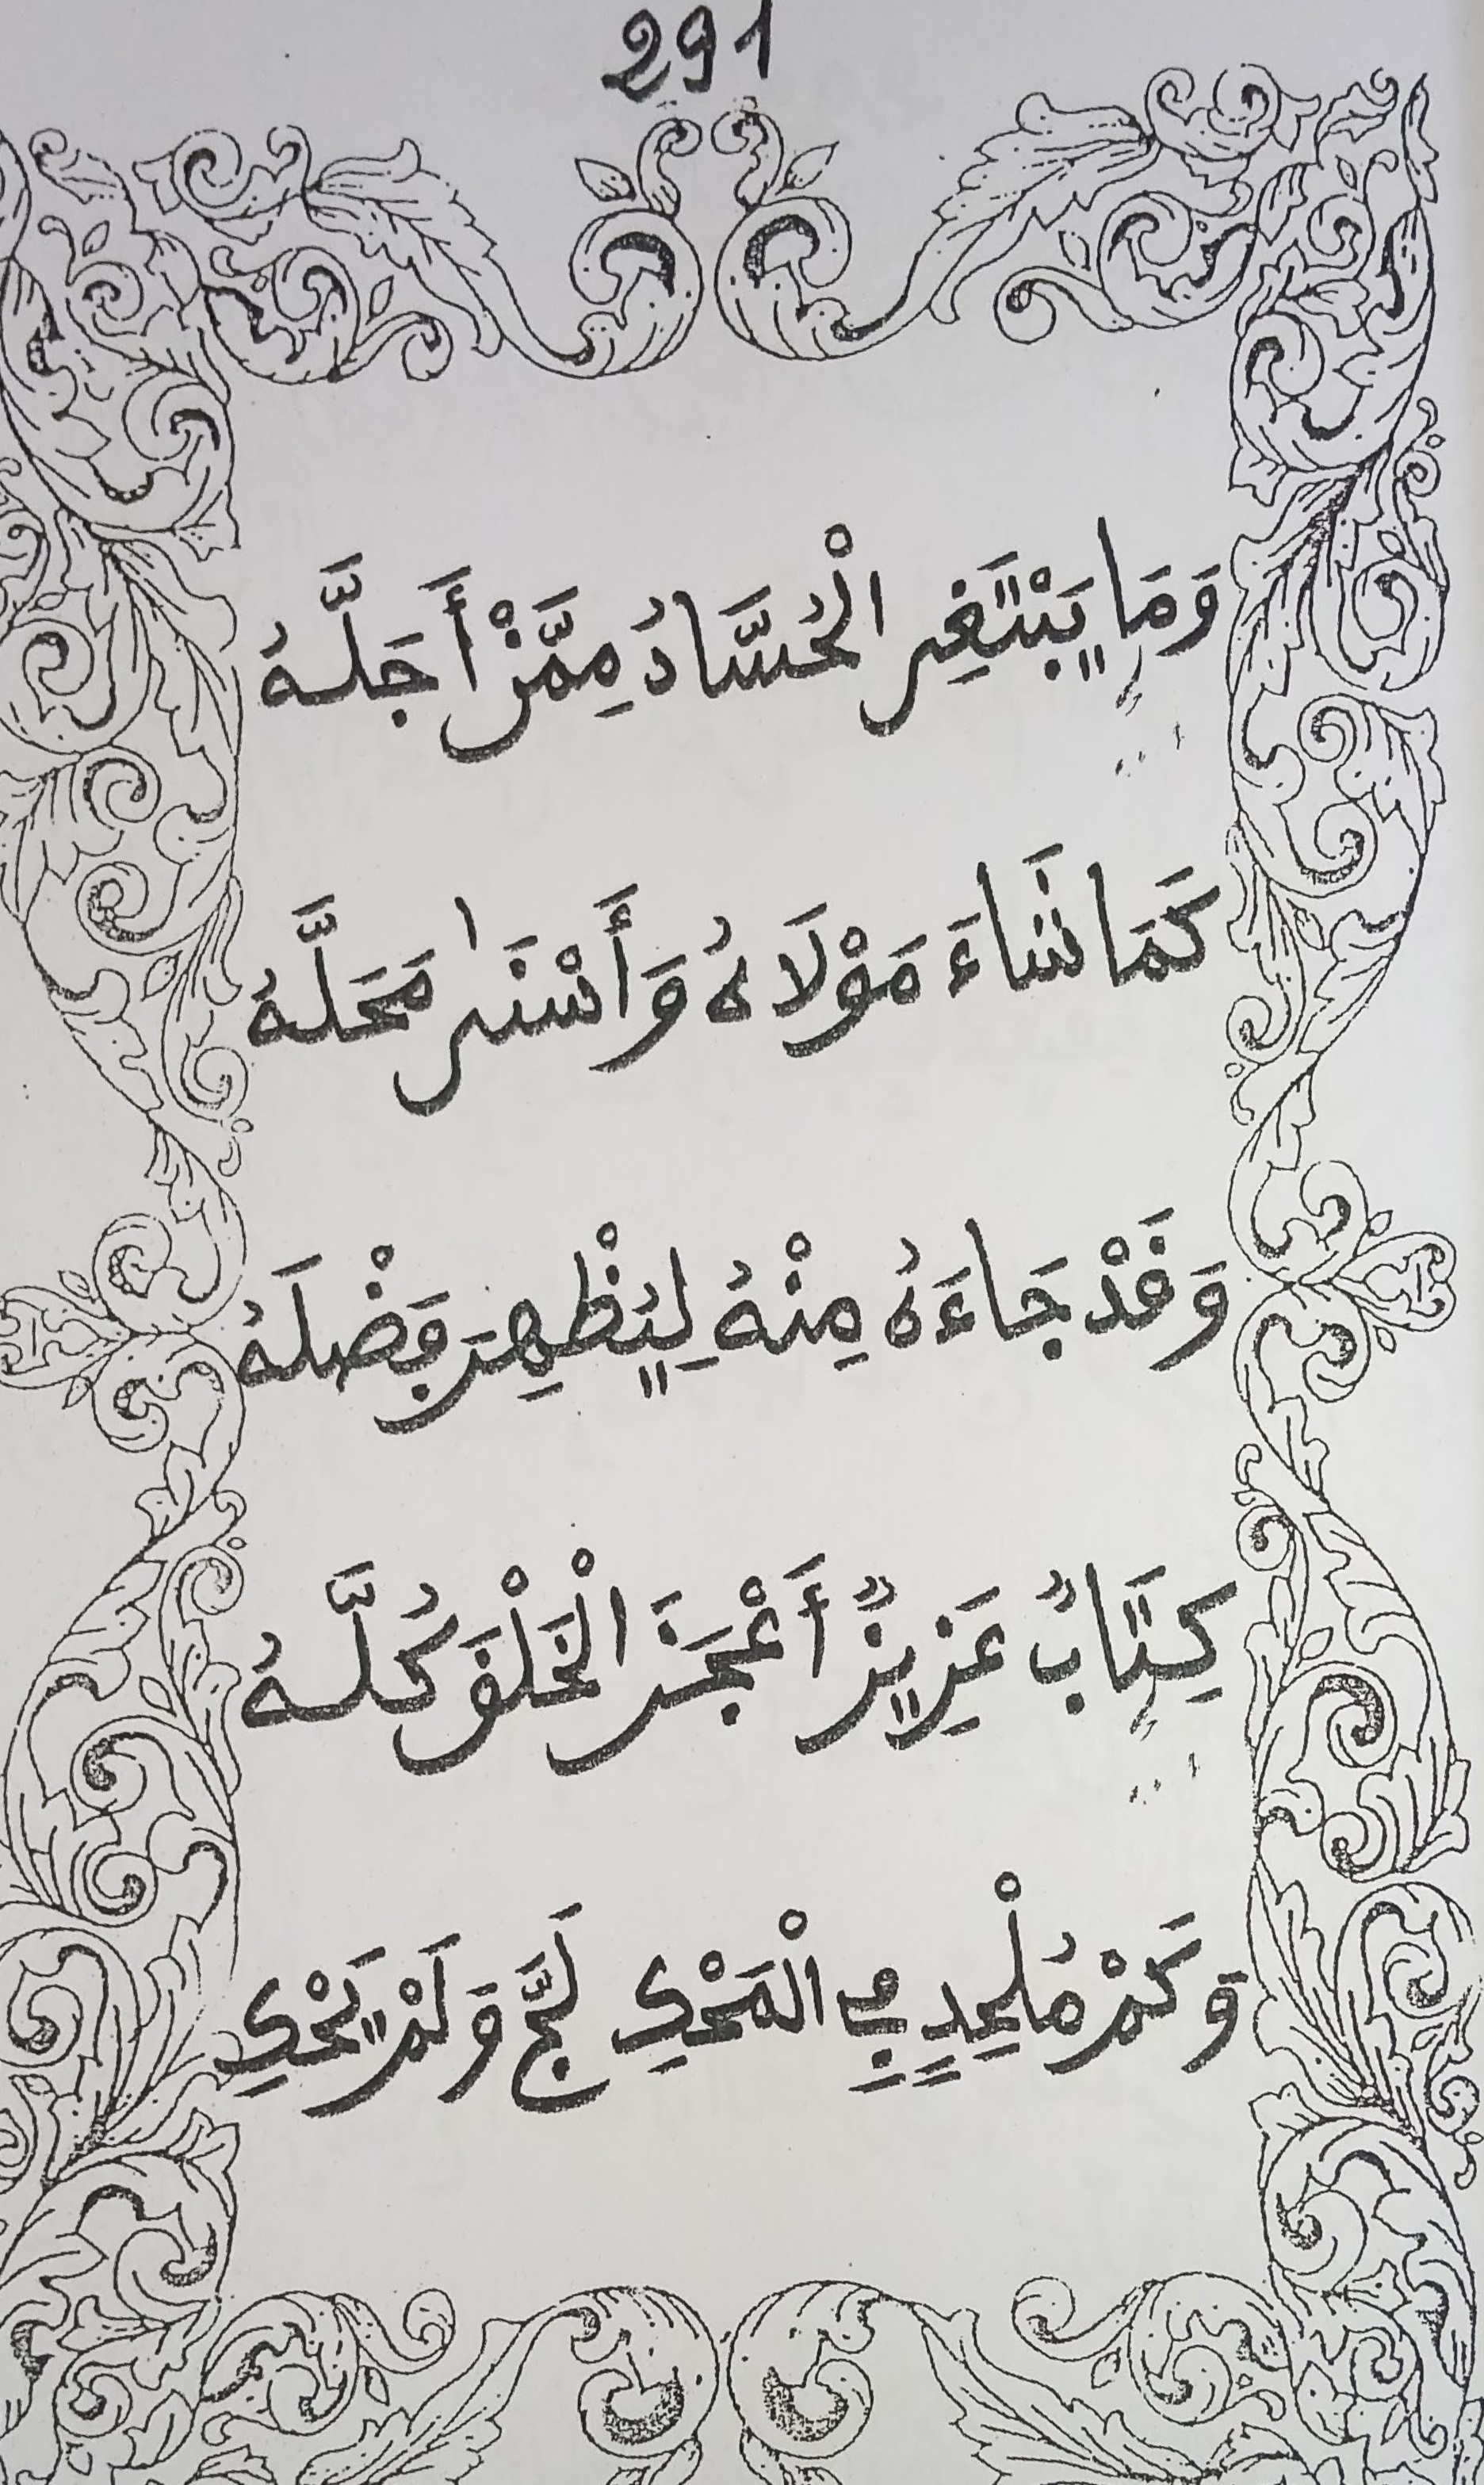 291
وَمَا يَبْتَغِي الْحُسَّادُ مِمَّنْ أَجَلَّهُ
كَمَا شَاءَ مَوْلَاهُ وَأَسْنَى مَحَلَّهُ
وَقَدْ جَاءَهُ مِنْهُ لِيُظْهِرَ فَضْلَهُ
كِتَابٌ عَزِيزٌ أَعْجَزَ الْخَلْقَ كُلَّهُ
وَكَمْ مُلْحِدٍ فِي الْمَحْكِ لَجَّ وَلَمْ يَحْكِ